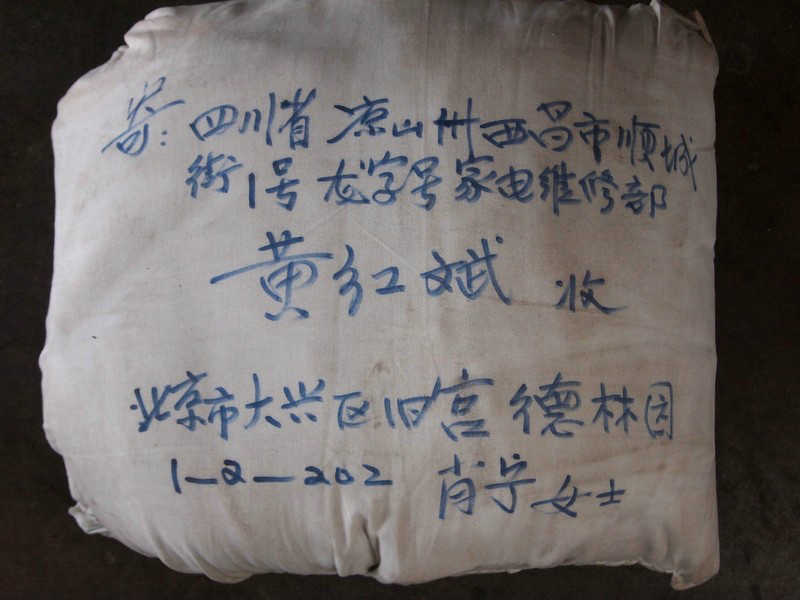 寄:四川省凉山州西昌市顺城
街1号龙字号家电维修部
黄红斌 收
北京市大兴区旧宫德林园
1-2-202 肖宁女士